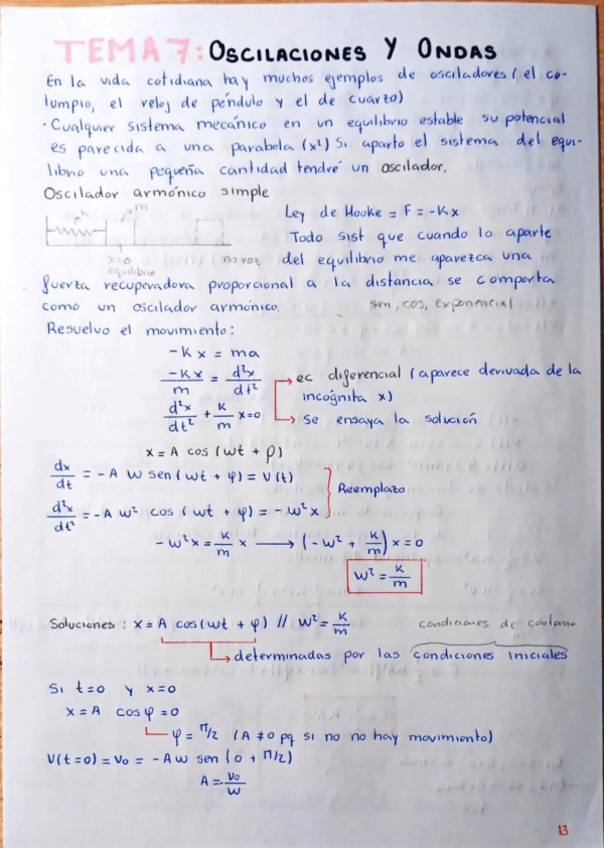 TEMA 7: OSCILACIONES Y ONDAS
En la vida cotidiana hay muchos ejemplos de osciladores (el co-
lumpio, el reloj de péndulo y el de cuarzo)
· Cualquier sistema mecánico en un equilibrio estable su potencial
es parecida a una parabola (x²) Si aparto el sistema del equi-
librio una pequeña cantidad tendré un oscilador.
Oscilador armónico simple
k m
x=0
equilibrio
no roz
Ley de Hooke = F = -Kx
Todo sist que cuando lo aparte
del equilibrio me aparezca una
fuerza recuperadora proporcional a la distancia se comporta
como un oscilador armónico. sen, cos, exponencial
Resuelvo el movimiento:
-Kx = ma
-Kx/m = d²x/dt²
d²x/dt² + K/m x=0
ec diferencial (aparece derivada de la
incógnita x)
Se ensaya la solución
x = A cos (wt + ρ)
dx/dt = -A w sen (wt + φ) = V(t)
d²x/dt² = -A w² cos (wt + φ) = -w²x
Reemplazo
-w²x = K/m x → (-w² + K/m) x = 0
w² = K/m
Soluciones: x = A cos(wt + φ) // w² = K/m condiciones de contorno
determinadas por las condiciones iniciales
Si t=0 y x=0
x = A cosφ = 0
φ = π/2 (A ≠ 0 pq si no no hay movimiento)
V(t=0) = V₀ = -Aw sen (0 + π/2)
A = -V₀/w
13